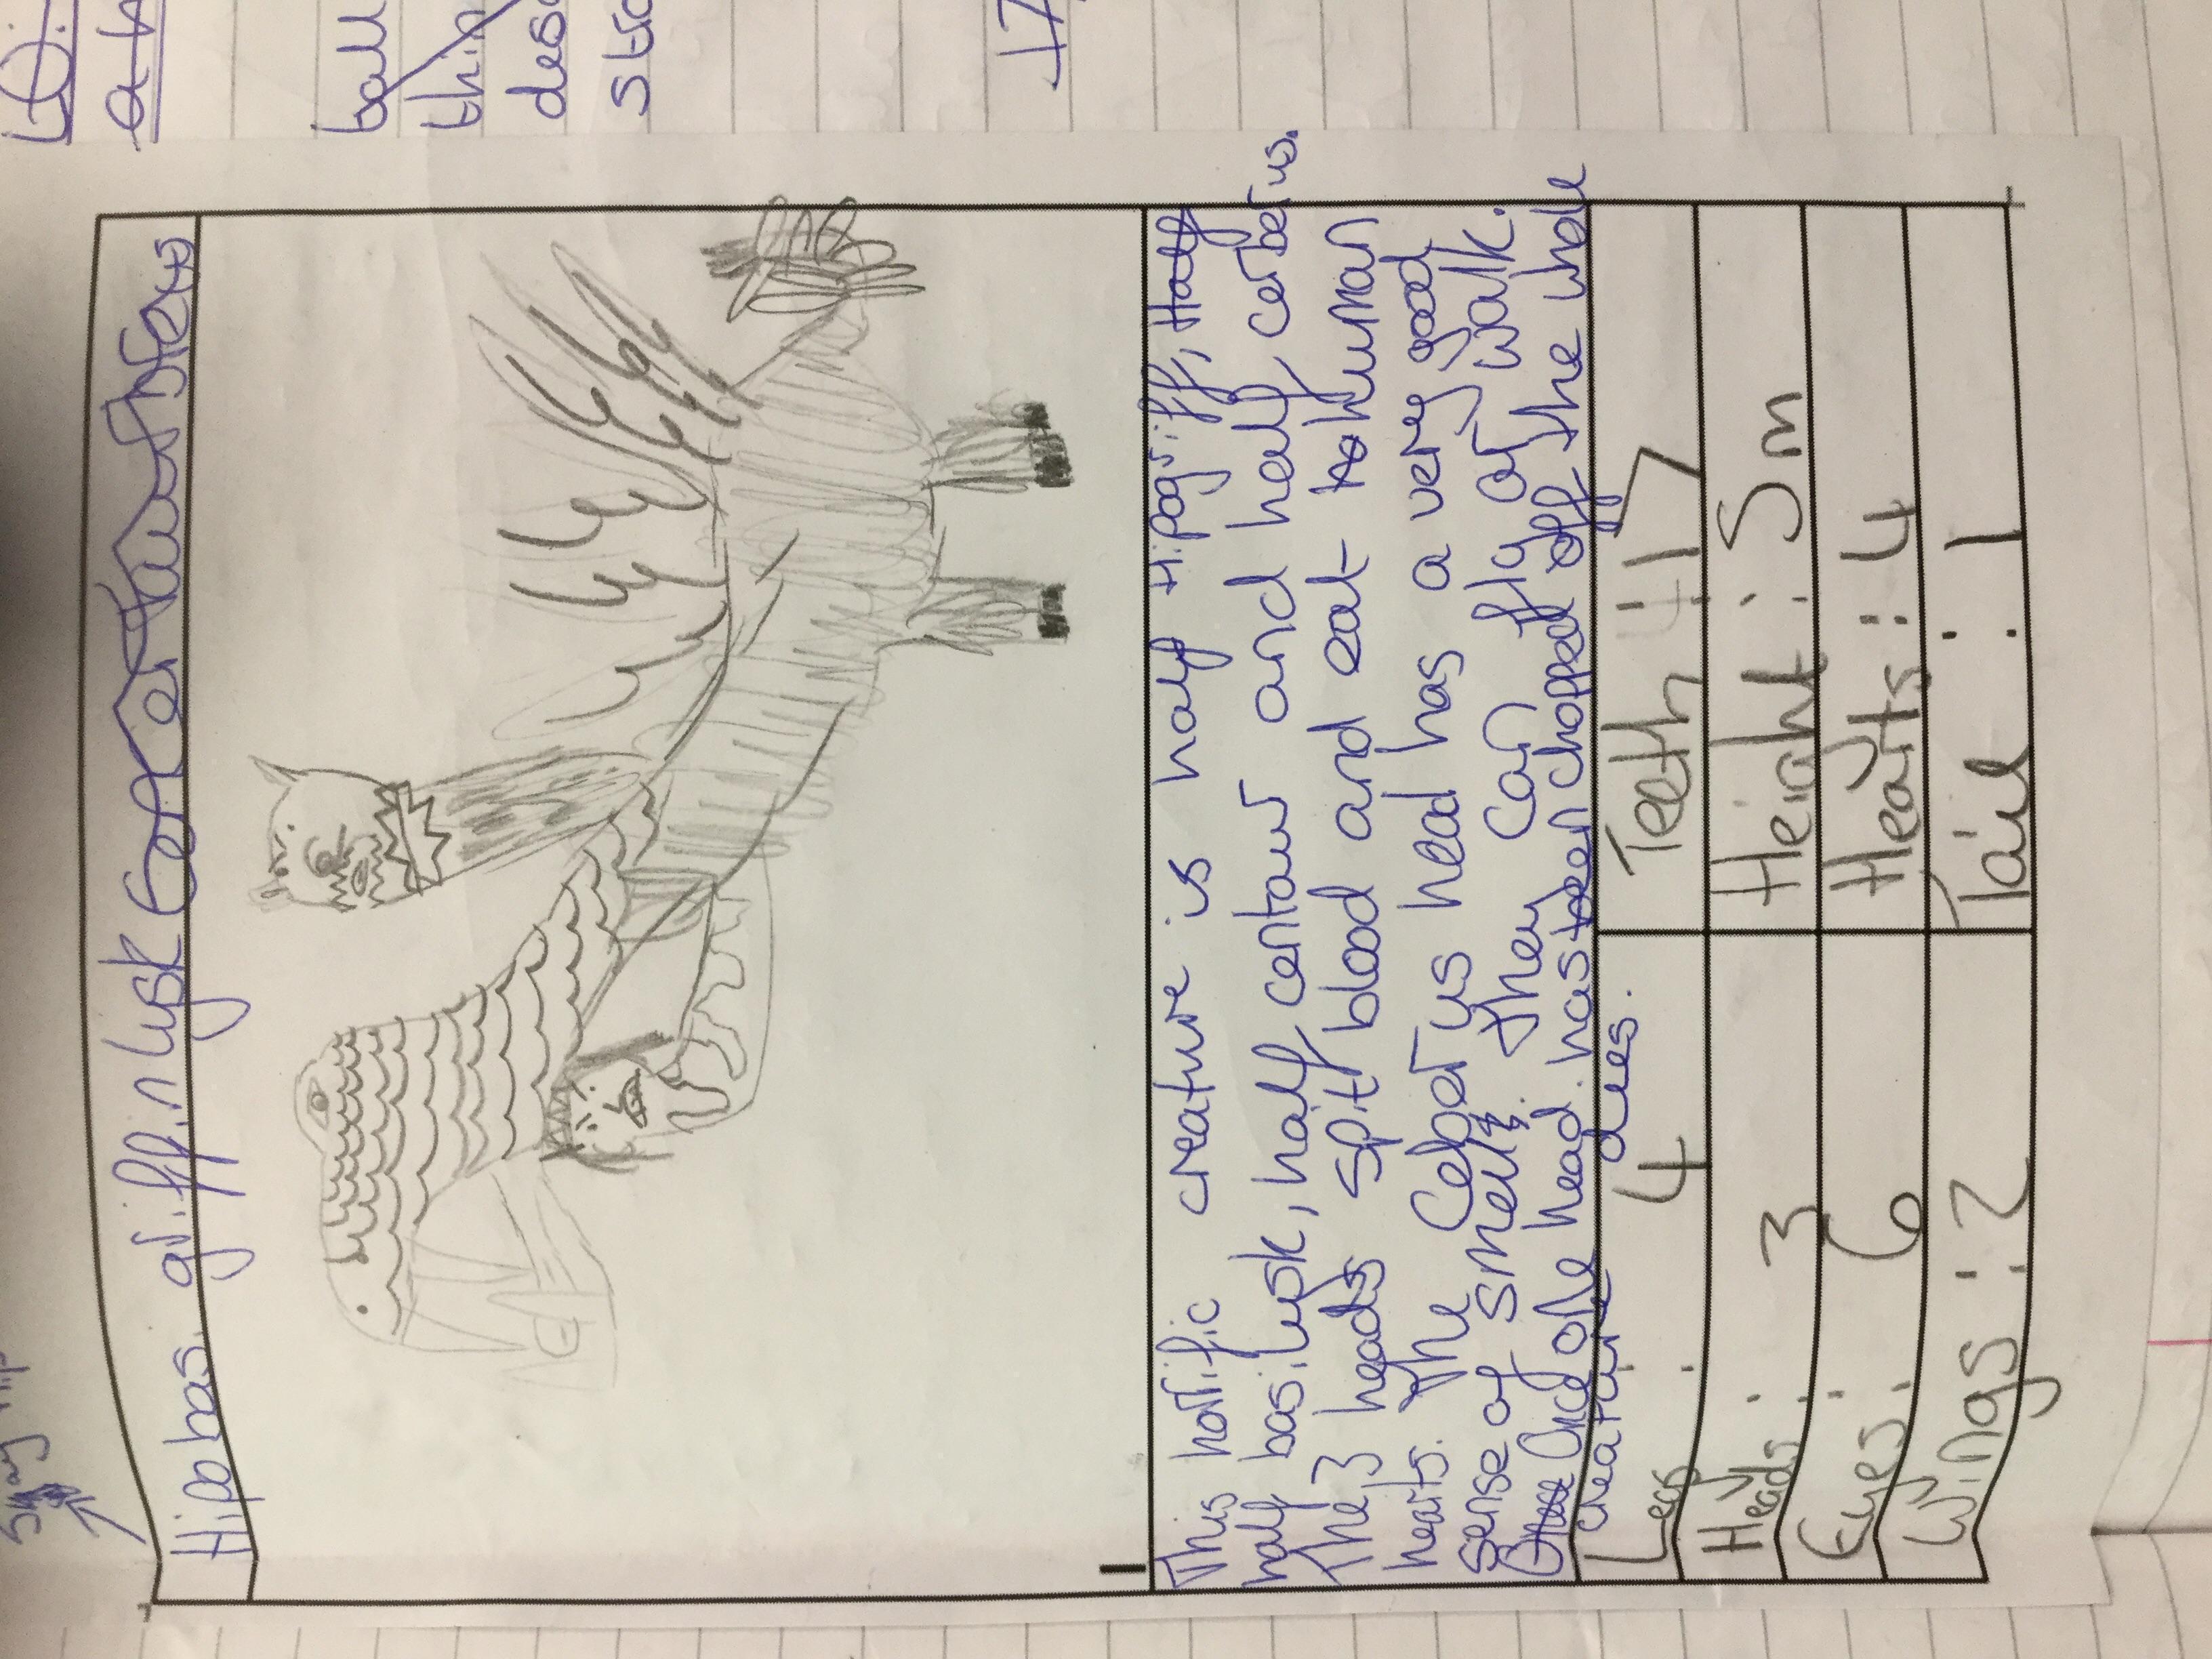 Hipobas griffin lusk
This horrific creature is half Hipogriff, Half
half basilusk, half centaur and half cerberus.
The 3 heads spit blood and eat human
hearts. The Ceberus head has a very good
sense of smell. They can fly or walk.
And one head has been chopped off the whole
creature dies.
Legs : 4
Teeth : 17
Heads : 3
Height : 5m
Eyes : 6
Hearts : 4
Wings : 2
Tail : 1
ball
thin
des
17